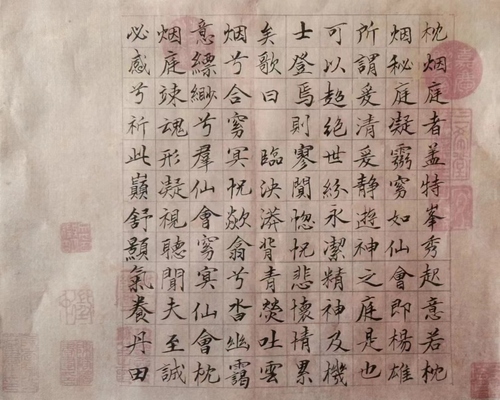 枕烟庭者盖特峯秀起意若枕
烟秘庭凝窅如仙會即楊雄
所謂爰清爰靜遊神之庭是也
可以超絕世紛永潔精神及機
士登焉則寥闃惚怳悲懷情累
矣歌曰 臨泱漭背青熒吐雲
烟兮合窅冥怳欻翕兮沓幽靄
意縹緲兮羣仙會窅冥仙會枕
烟庭竦魂形凝視聽聞夫至誠
必感兮祈此巔舒顥氣養丹田